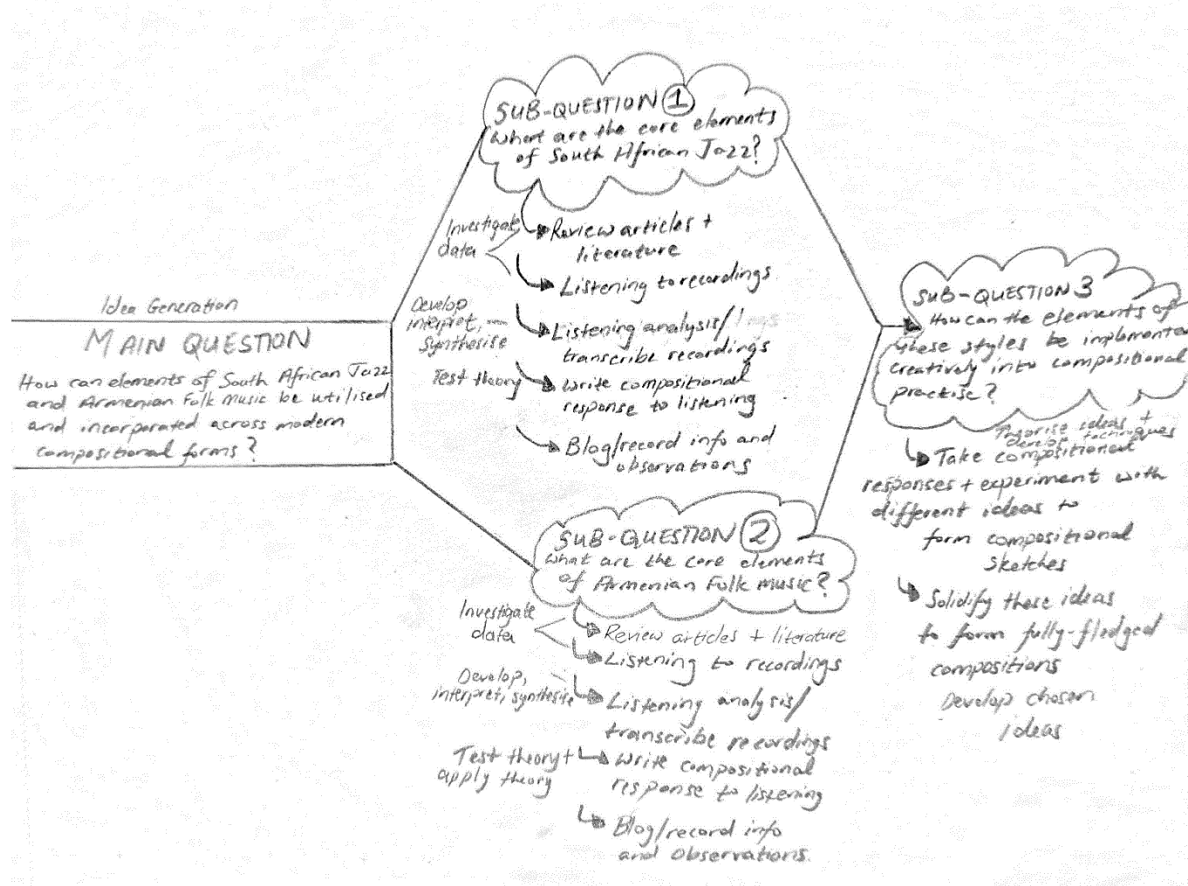 Idea Generation
MAIN QUESTION
How can elements of South African Jazz
and Armenian Folk Music be utilised
and incorporated across modern
compositional forms?
SUB-QUESTION 1
What are the core elements
of South African Jazz?
Investigate
data
Review articles +
literature
Listening to recordings
Develop
interpret,
synthesise
Listening analysis/
transcribe recordings
Test theory
Write compositional
response to listening
Blog/record info and
observations
SUB-QUESTION 2
What are the core elements
of Armenian Folk Music?
Investigate
data
Review articles + literature
Listening to recordings
Develop,
interpret, synthesise
Listening analysis/
transcribe recordings
Test theory +
apply theory
Write compositional
response to listening
Blog/record info
and observations.
SUB-QUESTION 3
How can the elements of
these styles be implemented
creatively into compositional
practise?
Theorise ideas +
develop techniques
Take compositional
responses + experiment with
different ideas to
form compositional
sketches
Solidify these ideas
to form fully-fledged
compositions
Develop chosen
ideas